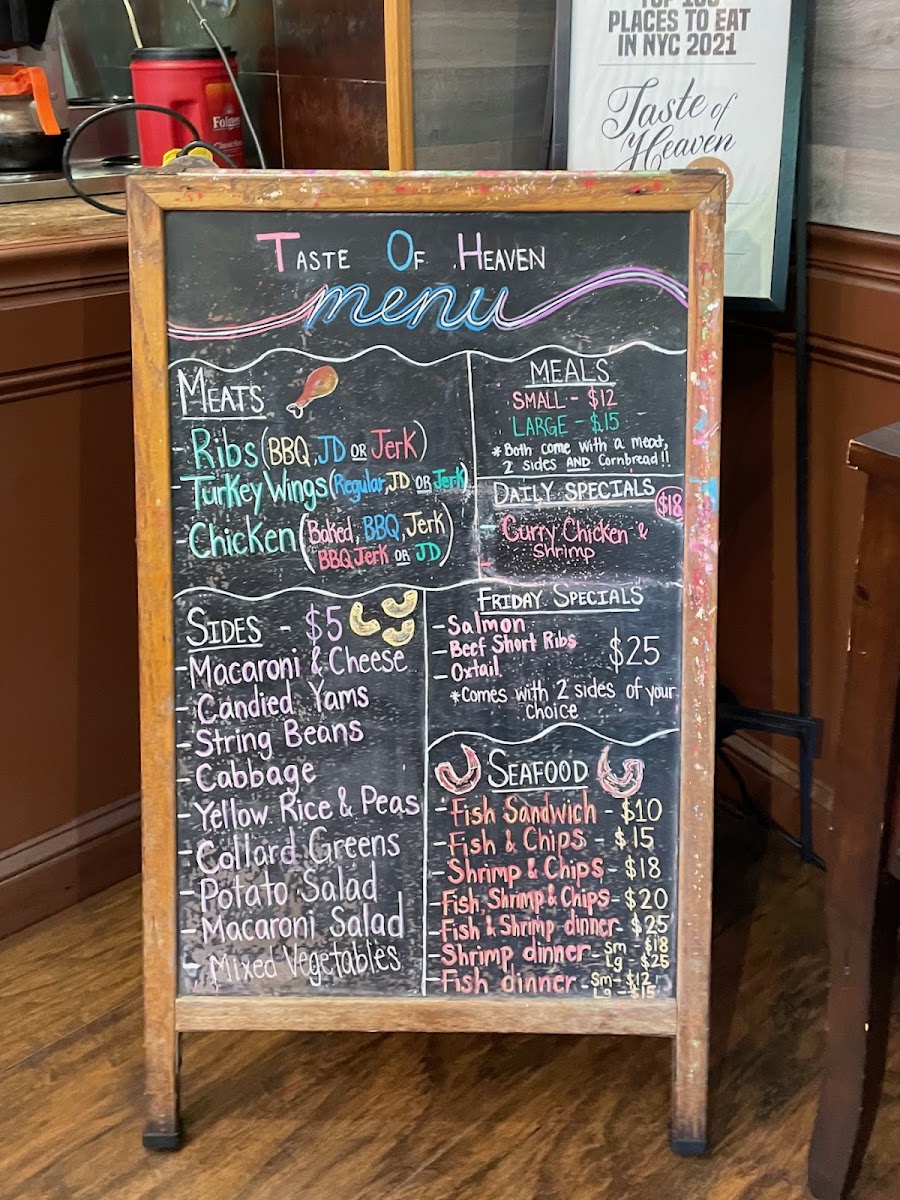 TOP 100
PLACES TO EAT
IN NYC 2021
Taste of
Heaven
Folgers
Classic
TASTE OF HEAVEN
menu
MEATS
- Ribs (BBQ, JD OR Jerk)
- Turkey Wings (Regular, JD OR Jerk)
- Chicken (Baked, BBQ, Jerk
BBQ Jerk OR JD)
MEALS
SMALL - $12
LARGE - $15
*Both come with a meat,
2 sides AND Cornbread!!
DAILY SPECIALS $18
- Curry Chicken &
Shrimp
-
SIDES - $5
- Macaroni & Cheese
- Candied Yams
- String Beans
- Cabbage
- Yellow Rice & Peas
- Collard Greens
- Potato Salad
- Macaroni Salad
- Mixed Vegetables
FRIDAY SPECIALS
- Salmon
- Beef Short Ribs
- Oxtail
$25
*Comes with 2 sides of your
choice
SEAFOOD
- Fish Sandwich - $10
- Fish & Chips - $15
- Shrimp & Chips - $18
- Fish, Shrimp & Chips - $20
- Fish & Shrimp dinner - $25
- Shrimp dinner - Sm - $18
Lg - $25
- Fish dinner - Sm - $12
Lg - $15